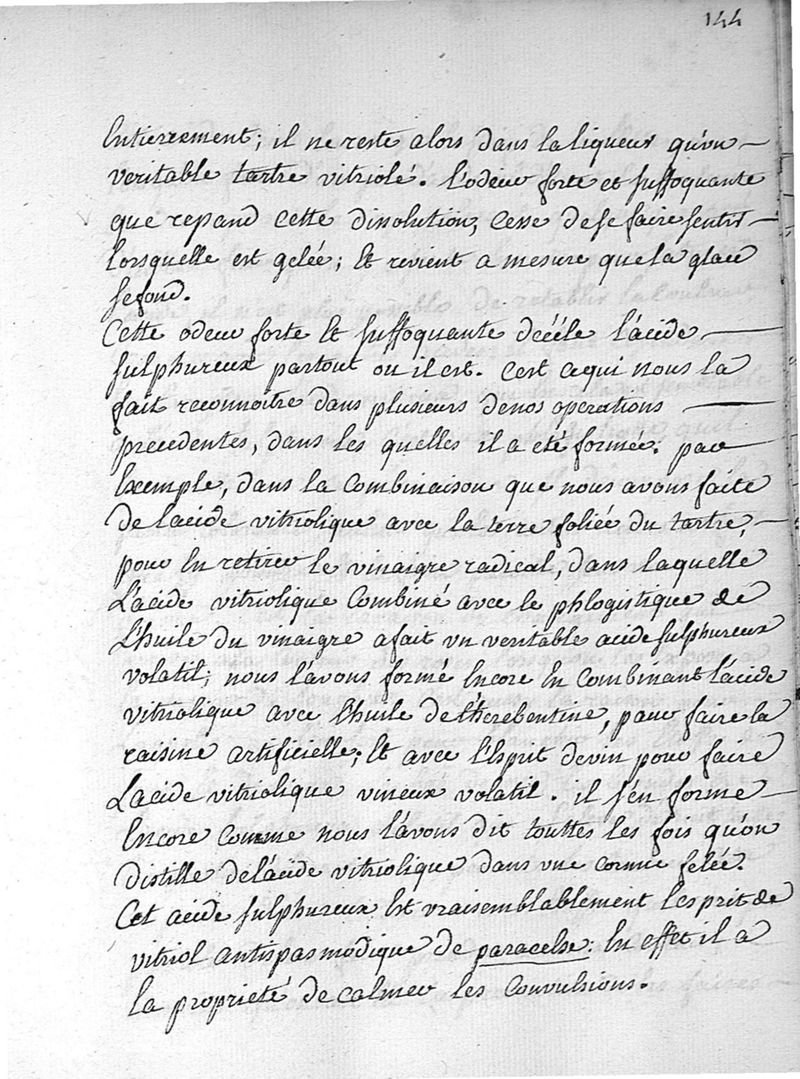 144
Entierrement; il ne reste alors dans la liqueur qu'un
veritable tartre vitriolé. l'odeur forte et suffoquante
que repand cette dissolution, cesse de se faire sentir
lorsquelle est gelée; et revient a mesure que la glace
se fond.
Cette odeur forte et suffoquante décéle l'acide
sulphureux partout ou il est. C'est ce qui nous la
fait reconnoitre dans plusieurs de nos operations
precedentes, dans les quelles il a eté formée: par
Exemple, dans la Combinaison que nous avons faite
de lacide vitriolique avec la terre foliée du tartre,
pour en retirer le vinaigre radical, dans laquelle
L'acide vitriolique Combiné avec le phlogistique de
L'huile du vinaigre a fait un veritable acide sulphureux
volatil; nous l'avons formé Encore En Combinant l'acide
vitriolique avec l'huile de thérebentine, pour faire la
raisine artificielle; Et avec l'Esprit de vin pour faire
Lacide vitriolique vineux volatil. il s'en forme
Encore comme nous l'avons dit touttes les fois qu'on
distille de l'acide vitriolique dans une cornue felée.
Cet acide sulphureux Est vraisemblablement lesprit de
vitriol antispasmodique de paracelse: En effet il a
la proprieté de calmer les Convulsions.